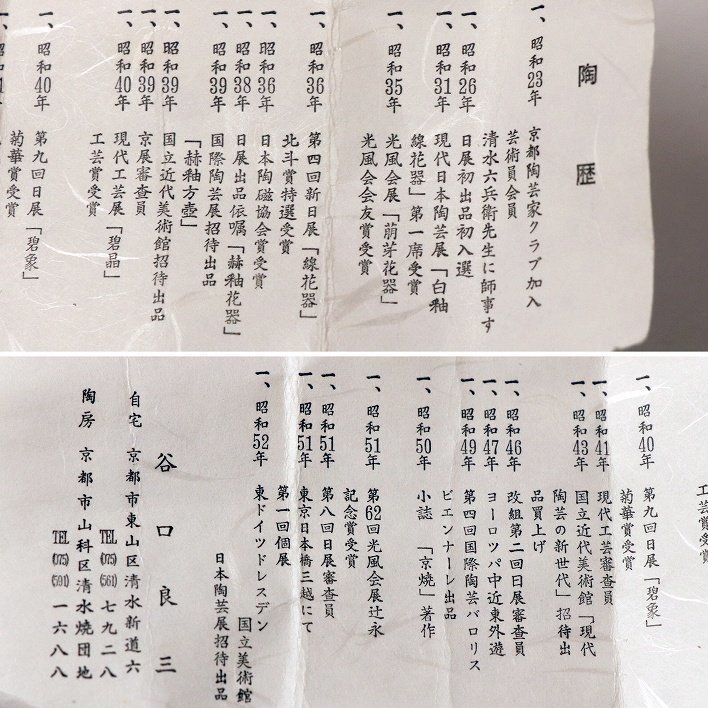 陶歴
一、昭和23年 京都陶芸家クラブ加入
芸術員会員
清水六兵衛先生に師事す
一、昭和26年 日展初出品初入選
一、昭和31年 現代日本陶芸展「白釉
線花器」第一席受賞
一、昭和35年 光風会展「萌芽花器」
光風会会友賞受賞
一、昭和36年 第四回新日展「線花器」
北斗賞特選受賞
一、昭和36年 日本陶磁協会賞受賞
一、昭和38年 日展出品依嘱「赫釉花器」
一、昭和39年 国際陶芸展招待出品
「赫釉方壺」
一、昭和39年 国立近代美術館招待出品
一、昭和39年 京展審査員
一、昭和40年 現代工芸展「碧晶」
工芸賞受賞
一、昭和40年 第九回日展「碧象」
菊華賞受賞
工芸賞受賞
一、昭和40年 第九回日展「碧象」
菊華賞受賞
一、昭和41年 現代工芸審査員
一、昭和43年 国立近代美術館「現代
陶芸の新世代」招待出
品買上げ
一、昭和46年 改組第二回日展審査員
一、昭和47年 ヨーロッパ中近東外遊
一、昭和49年 第四回国際陶芸バロリス
ビエンナーレ出品
一、昭和50年 小誌「京焼」著作
一、昭和51年 第62回光風会展辻永
記念賞受賞
一、昭和51年 第八回日展審査員
一、昭和51年 東京日本橋三越にて
第一回個展
一、昭和52年 東ドイツドレスデン
国立美術館
日本陶芸展招待出品
谷口良三
自宅 京都市東山区清水新道六
TEL(075)(561)七九二八
陶房 京都市山科区清水焼団地
TEL(075)(591)一六八八